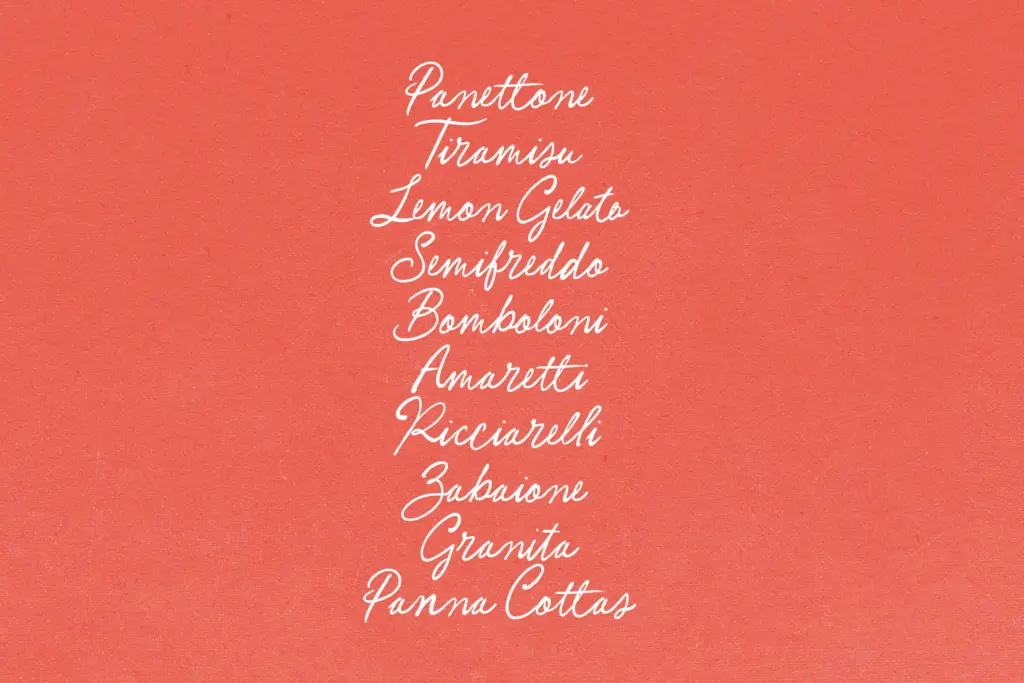 Panettone
Tiramisu
Lemon Gelato
Semifreddo
Bomboloni
Amaretti
Ricciarelli
Zabaione
Granita
Panna Cottas